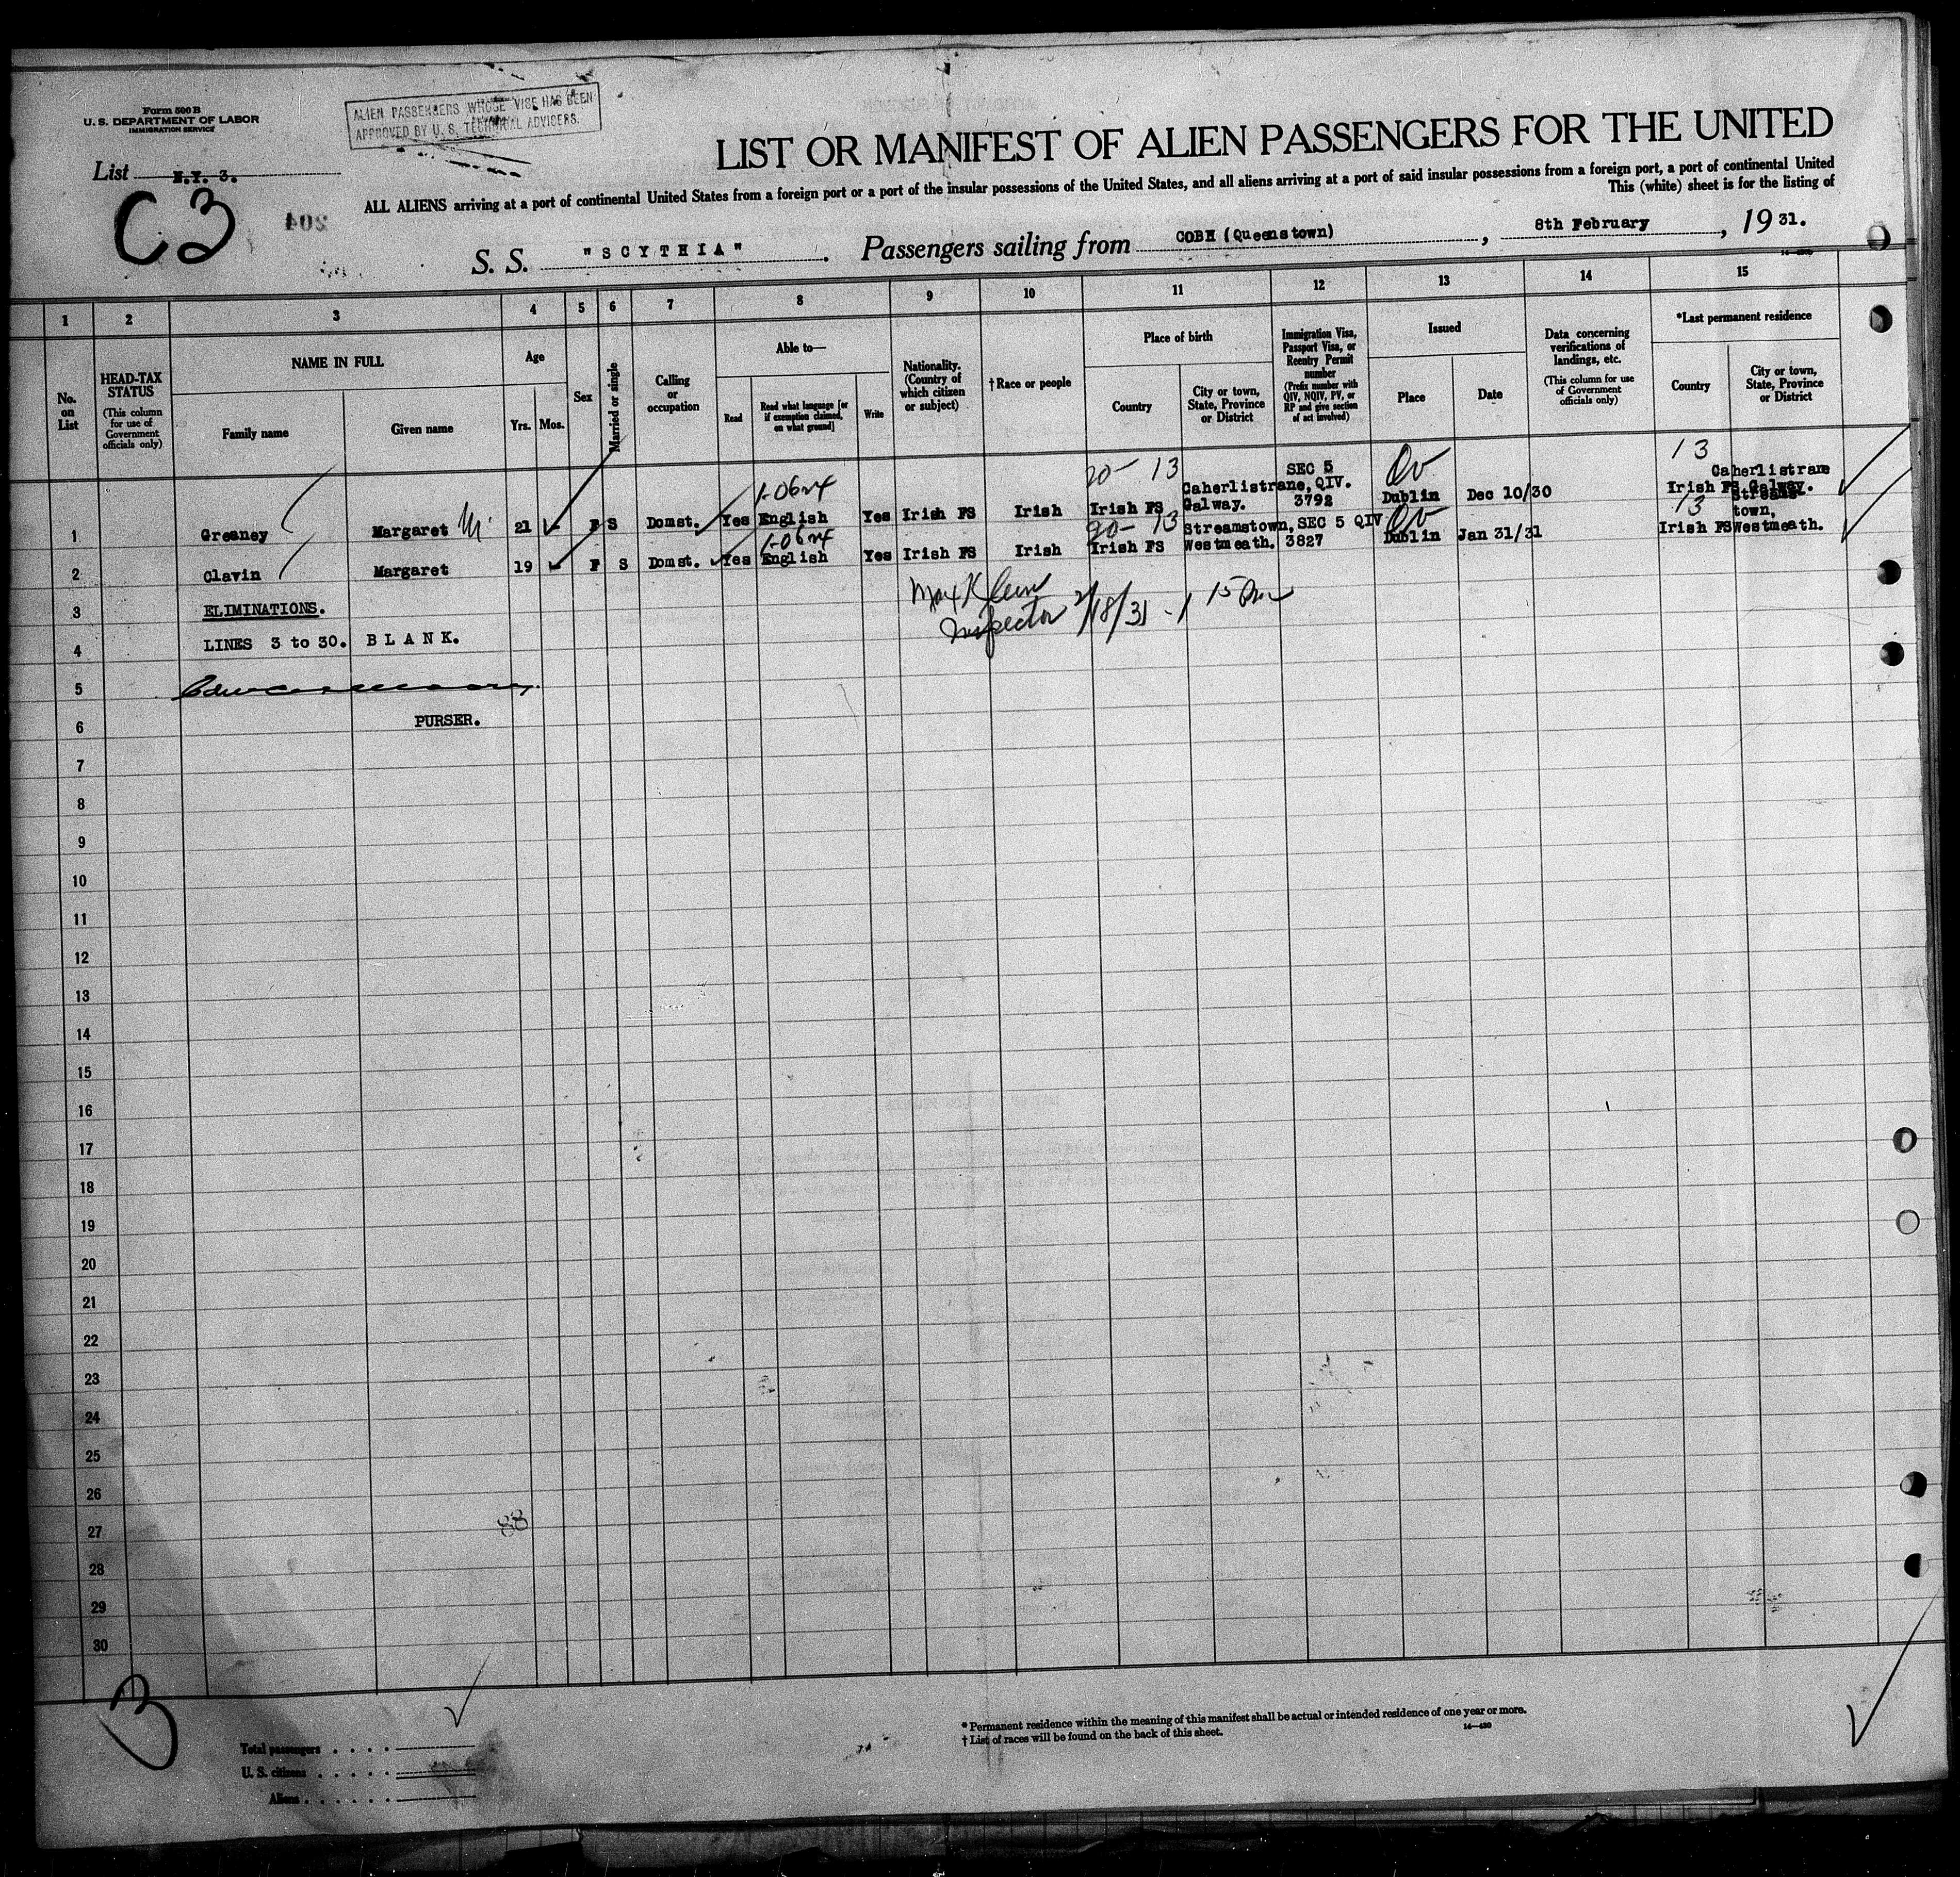 Form 500 B
U. S. DEPARTMENT OF LABOR
IMMIGRATION SERVICE
ALIEN PASSENGERS WHOSE VISE HAS BEEN
APPROVED BY U. S. TECHNICAL ADVISERS.
List N.Y. 3.
C3
204
LIST OR MANIFEST OF ALIEN PASSENGERS FOR THE UNITED
ALL ALIENS arriving at a port of continental United States from a foreign port or a port of the insular possessions of the United States, and all aliens arriving at a port of said insular possessions from a foreign port, a port of continental United
This (white) sheet is for the listing of
S. S. "SCYTHIA". Passengers sailing from COBH (Queenstown), 8th February, 1931.
1 2 3 4 5 6 7 8 9 10 11 12 13 14 15
No. on List
HEAD-TAX STATUS
(This column for use of Government officials only)
NAME IN FULL
Family name
Given name
Age
Yrs.
Mos.
Sex
Married or single
Calling or occupation
Able to—
Read
Read what language [or if exemption claimed, on what ground]
Write
Nationality. (Country of which citizen or subject)
† Race or people
Place of birth
Country
City or town, State, Province or District
Immigration Visa, Passport Visa, or Reentry Permit number
(Prefix number with QIV, NQIV, PV, or RP and give section of act involved)
Issued
Place
Date
Data concerning verifications of landings, etc.
(This column for use of Government officials only)
*Last permanent residence
Country
City or town, State, Province or District
1 Greaney Margaret 21 F S Domst. Yes English Yes Irish FS Irish Irish FS Caherlistrane, Galway. SEC 5 QIV. 3792 Dublin Dec 10/30 Irish FS Caherlistrane Galway.
2 Clavin Margaret 19 F S Domst. Yes English Yes Irish FS Irish Irish FS Streamstown, Westmeath. SEC 5 QIV 3827 Dublin Jan 31/31 Irish FS Streamstown, Westmeath.
20- 13
20- 13
13
13
3 ELIMINATIONS.
4 LINES 3 to 30. BLANK.
Max Klein
Inspector 2/18/31
5
6 PURSER.
7
8
9
10
11
12
13
14
15
16
17
18
19
20
21
22
23
24
25
26
27
88
28
29
30
3
Total passengers
U. S. citizens
Aliens
* Permanent residence within the meaning of this manifest shall be actual or intended residence of one year or more.
† List of races will be found on the back of this sheet.
14—430